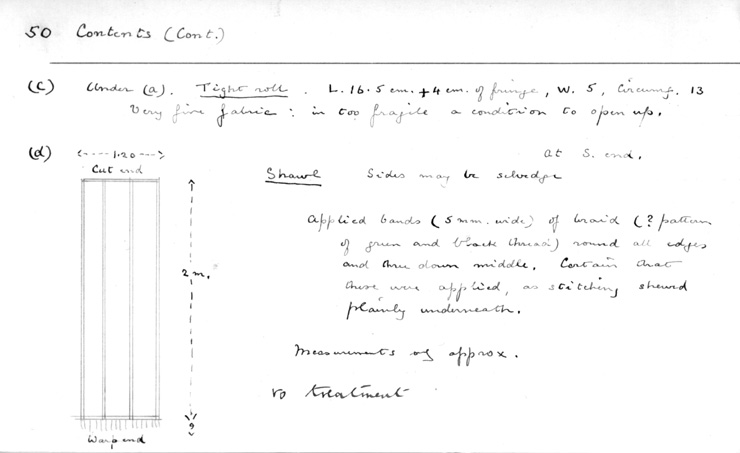 50 Contents (Cont.)
(c) Under (a). Tight roll. L. 16.5 cm. + 4 cm. of fringe, W. 5, Circumf. 13
Very fine fabric: in too fragile a condition to open up.
(d)
<----1.20--->
Cut end
2 m.
?
Warp end
at S. end.
Shawl Sides may be selvedge
Applied bands (5 mm. wide) of braid (? pattern
of green and black thread) round all edges
and three down middle. Certain that
these were applied, as stitching shewed
plainly underneath.
Measurements approx.
treatment